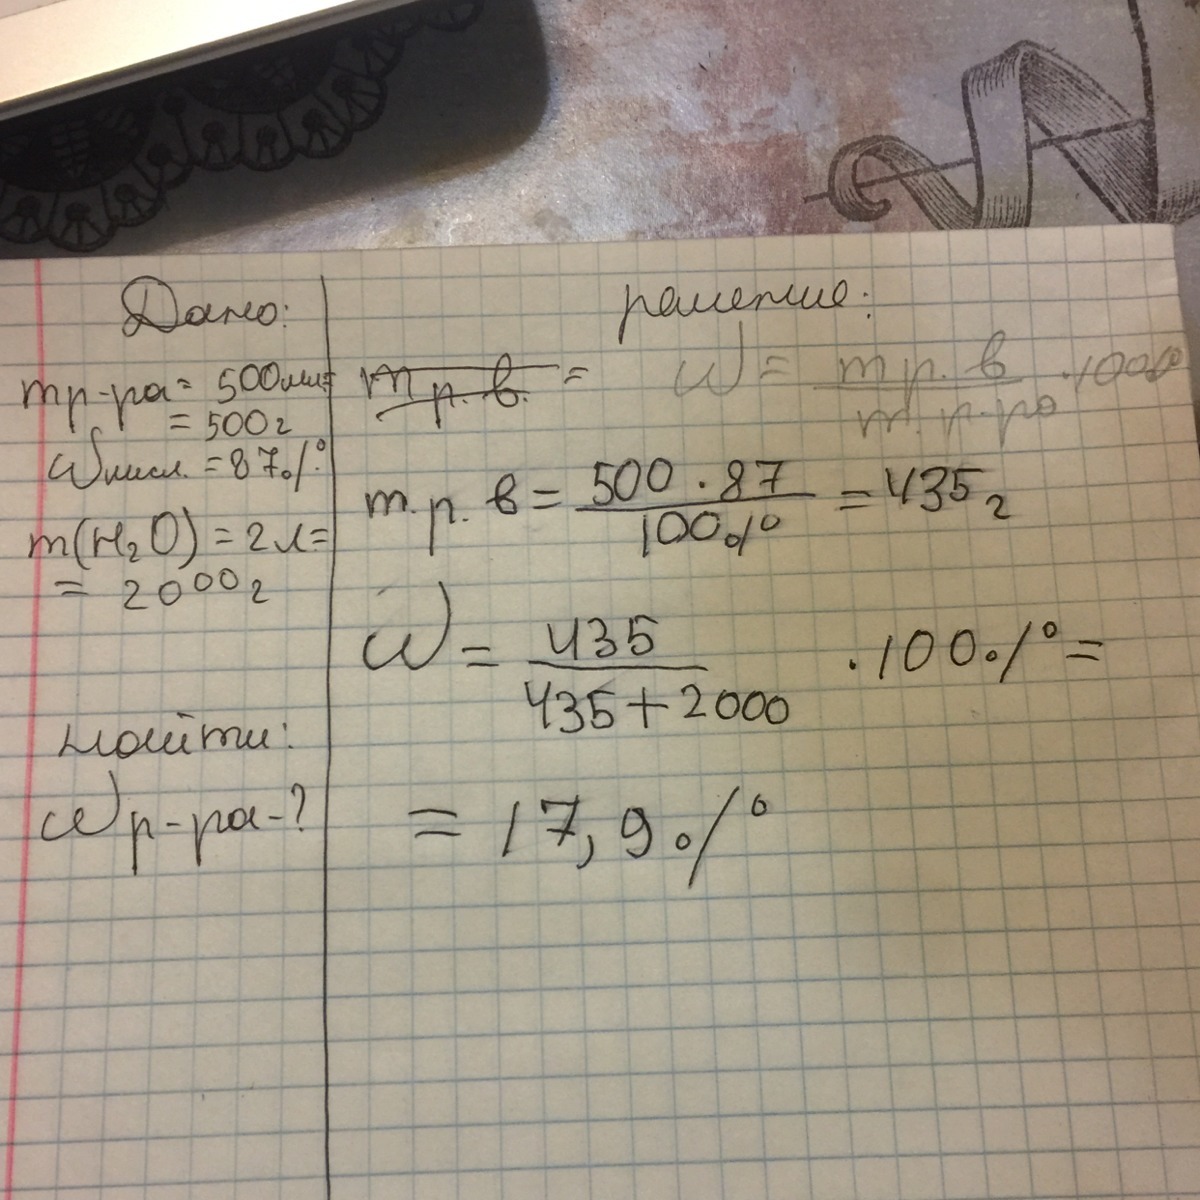 Дано:
mр-ра = 500мл=
= 500г
ω кисл. = 87%
m(H₂O) = 2л=
= 2000г
найти:
ωр-ра-?
решение:
m р. в. = ω = m р. в / m р-ра · 100%
m.р. в = 500 · 87 / 100% = 435г
ω = 435 / 435+2000 · 100% =
= 17,9%